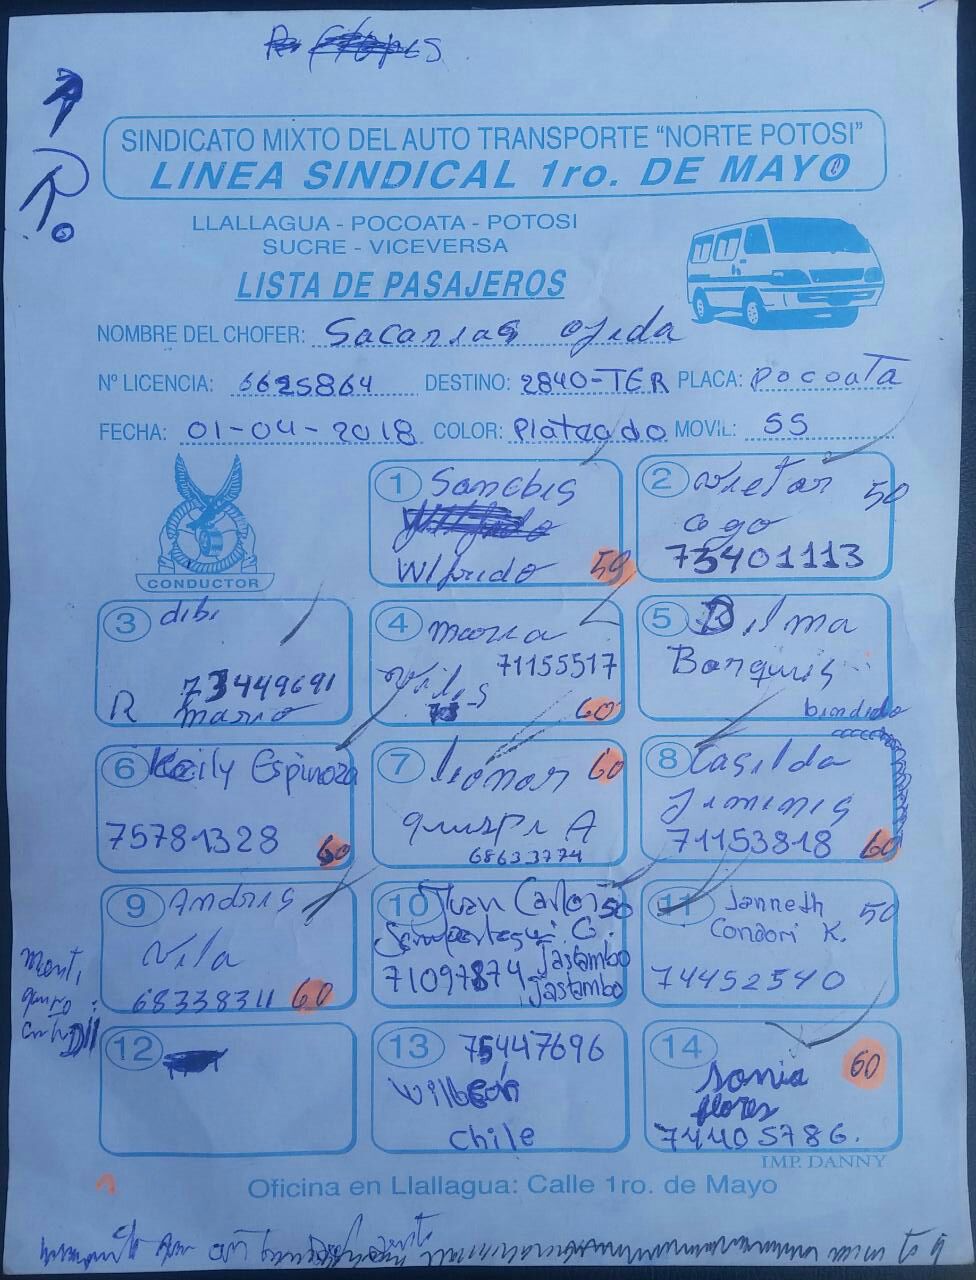 SINDICATO MIXTO DEL AUTO TRANSPORTE "NORTE POTOSI"
LINEA SINDICAL 1ro. DE MAYO
LLALLAGUA - POCOATA - POTOSI
SUCRE - VICEVERSA
LISTA DE PASAJEROS
NOMBRE DEL CHOFER: Sacarias ojeda
Nº LICENCIA: 6625864 DESTINO: 2840-TER PLACA: Pocoata
FECHA: 01-04-2018 COLOR: Plateado MOVIL: 55
CONDUCTOR
1 Sanchis
Wlfrido
2 Victor 50
73401113
3 dibi
73449691
R mario
4 maria
71155517
60
5 Bilma
6 Keily Espinoza
75781328 60
7 60
quispi A
68633774
8 Casilda
Jiminis
71153818 60
9 Andris
Vila
68338311 60
10 Juan Carlos 50
71097874 Jastambo
Jastambo
11 Janneth 50
Condori K.
74452540
12
13 75447696
Chile
14 60
sonia
flores
74405786.
IMP. DANNY
Oficina en Llallagua: Calle 1ro. de Mayo